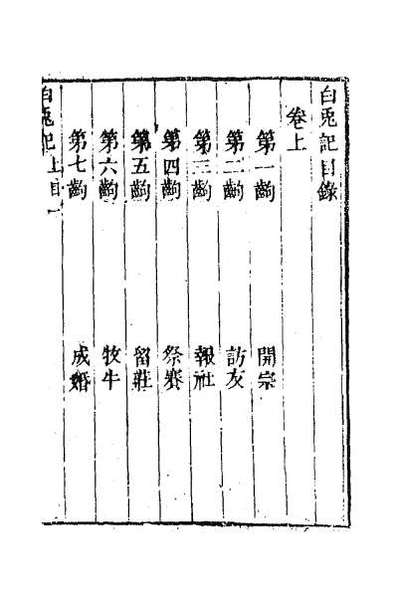 白兎記目錄
卷上
第一齣 開宗
第二齣 訪友
第三齣 報社
第四齣 祭賽
第五齣 留莊
第六齣 牧牛
第七齣 成婚
白兎記上目一